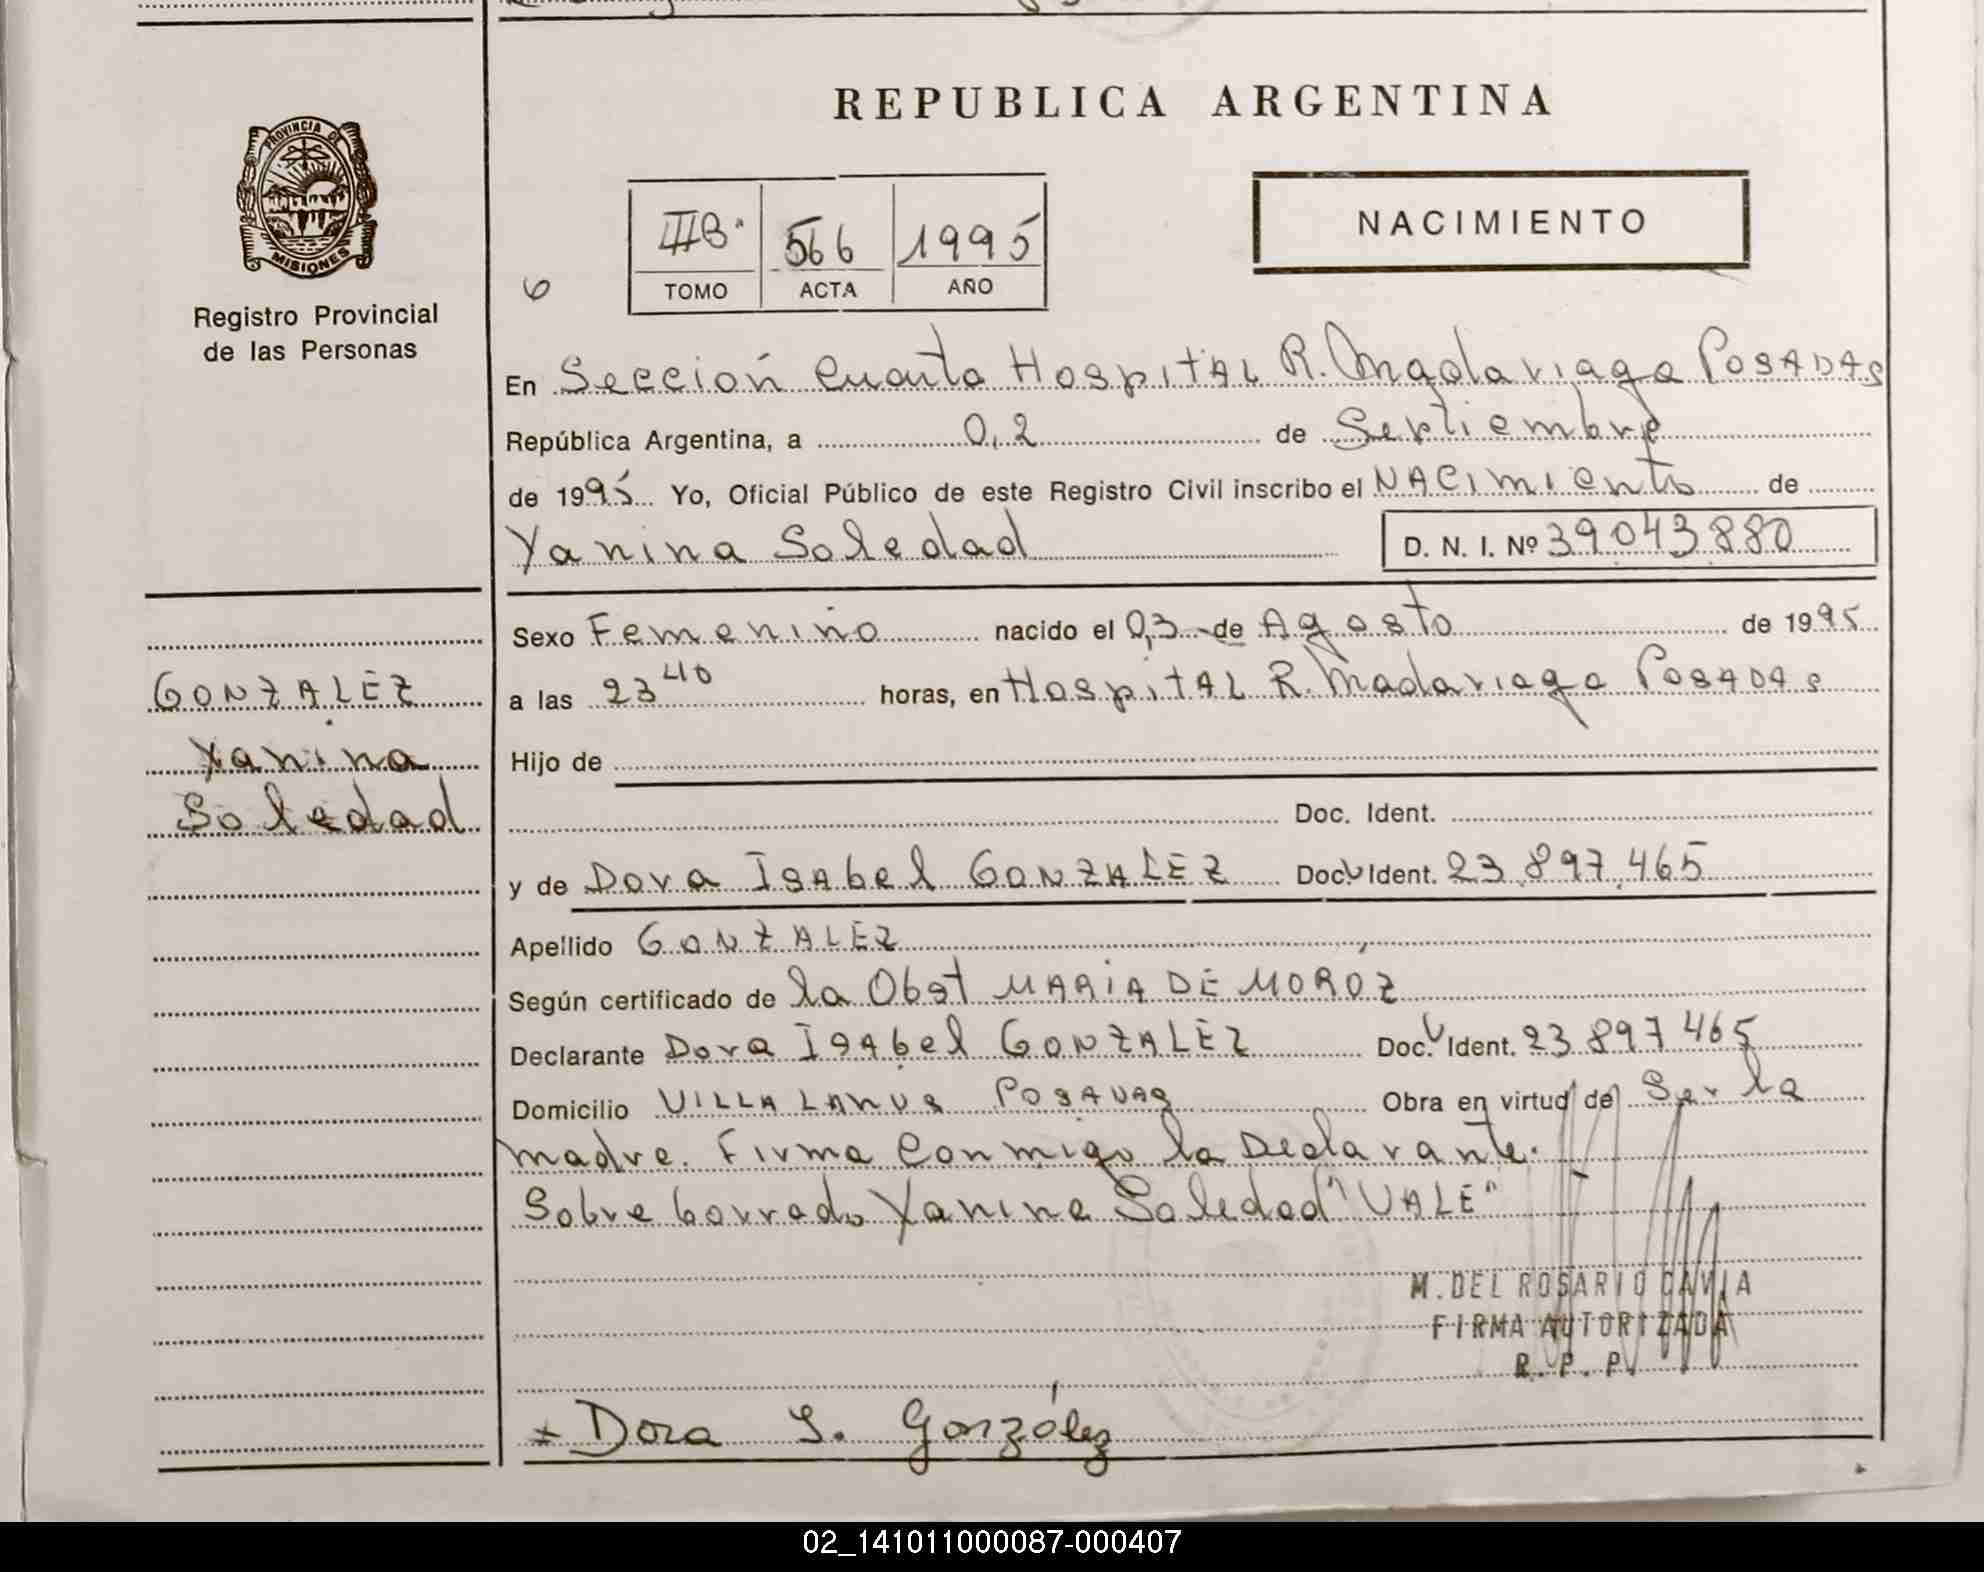 REPUBLICA ARGENTINA
PROVINCIA DE
MISIONES
Registro Provincial
de las Personas
NACIMIENTO
IIIB. 566 1995
TOMO ACTA AÑO
6
En Sección Cuarta Hospital R. Madariaga Posadas
República Argentina, a 02 de Septiembre
de 1995 Yo, Oficial Público de este Registro Civil inscribo el NACimiento de
Yanina Soledad D. N. I. Nº 39043880
Sexo Femenino nacido el 03 de Agosto de 1995
a las 23 40 horas, en Hospital R. Madariaga Posadas
GONZALEZ
Yanina
Soledad
Hijo de
Doc. Ident.
y de Dora Isabel GONZALEZ Doc. Ident. 23.897.465
Apellido GONZALEZ
Según certificado de la Obst MARIA DE MOROZ
Declarante Dora Isabel GONZALEZ Doc. Ident. 23 897 465
Domicilio VILLA LANUS POSADAS Obra en virtud de Ser la
madre. Firma Conmigo la Declarante.
Sobre borrado Yanina Soledad "VALE"
M. DEL ROSARIO CAVIA
FIRMA AUTORIZADA
R. P. P.
+ Dora I. González
02_141011000087-000407